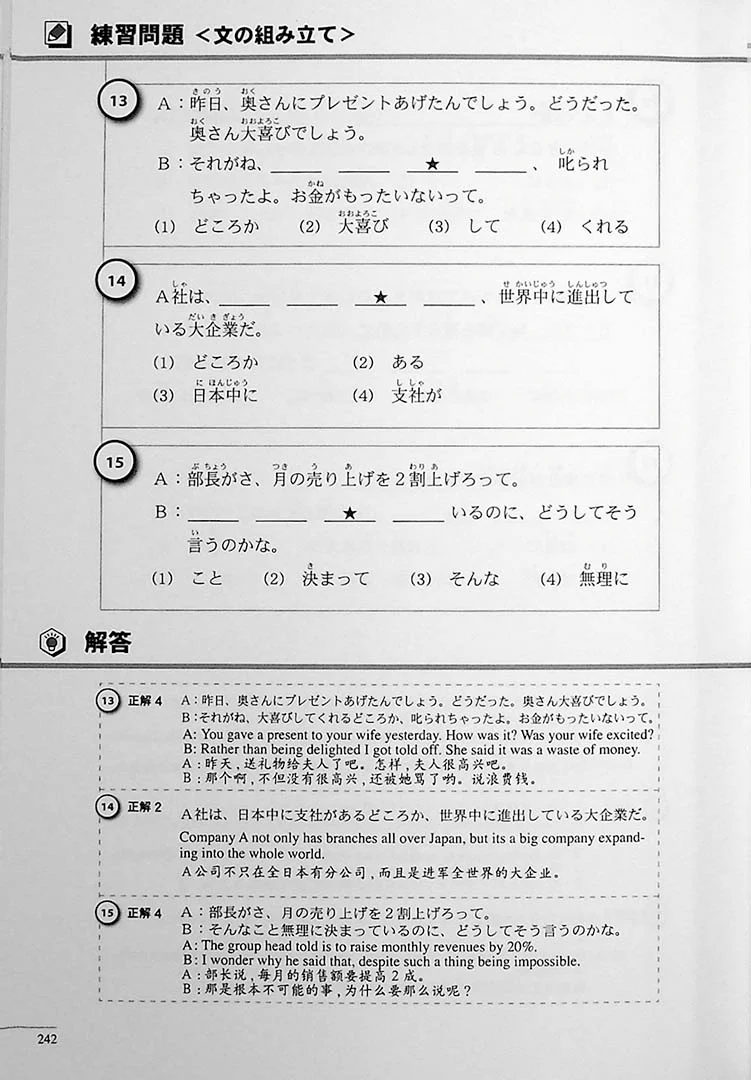 練習問題 <文の組み立て>
13
A：昨日、奥さんにプレゼントあげたんでしょう。どうだった。
奥さん大喜びでしょう。
B：それがね、_____ _____ __★__ _____ 、叱られ
ちゃったよ。お金がもったいないって。
(1) どころか (2) 大喜び (3) して (4) くれる
14
A社は、_____ _____ __★__ _____ 、世界中に進出して
いる大企業だ。
(1) どころか (2) ある
(3) 日本中に (4) 支社が
15
A：部長がさ、月の売り上げを２割上げろって。
B：_____ _____ __★__ _____ いるのに、どうしてそう
言うのかな。
(1) こと (2) 決まって (3) そんな (4) 無理に
解答
13 正解 4 A：昨日、奥さんにプレゼントあげたんでしょう。どうだった。奥さん大喜びでしょう。
B：それがね、大喜びしてくれるどころか、叱られちゃったよ。お金がもったいないって。
A: You gave a present to your wife yesterday. How was it? Was your wife excited?
B: Rather than being delighted I got told off. She said it was a waste of money.
A：昨天，送礼物给夫人了吧。怎样，夫人很高兴吧。
B：那个啊，不但没有很高兴，还被她骂了哟。说浪费钱。
14 正解 2 A社は、日本中に支社があるどころか、世界中に進出している大企業だ。
Company A not only has branches all over Japan, but its a big company expand-
ing into the whole world.
A公司不只在全日本有分公司，而且是进军全世界的大企业。
15 正解 4 A：部長がさ、月の売り上げを２割上げろって。
B：そんなこと無理に決まっているのに、どうしてそう言うのかな。
A: The group head told is to raise monthly revenues by 20%.
B: I wonder why he said that, despite such a thing being impossible.
A：部长说，每月的销售额要提高２成。
B：那是根本不可能的事，为什么要那么说呢？
242